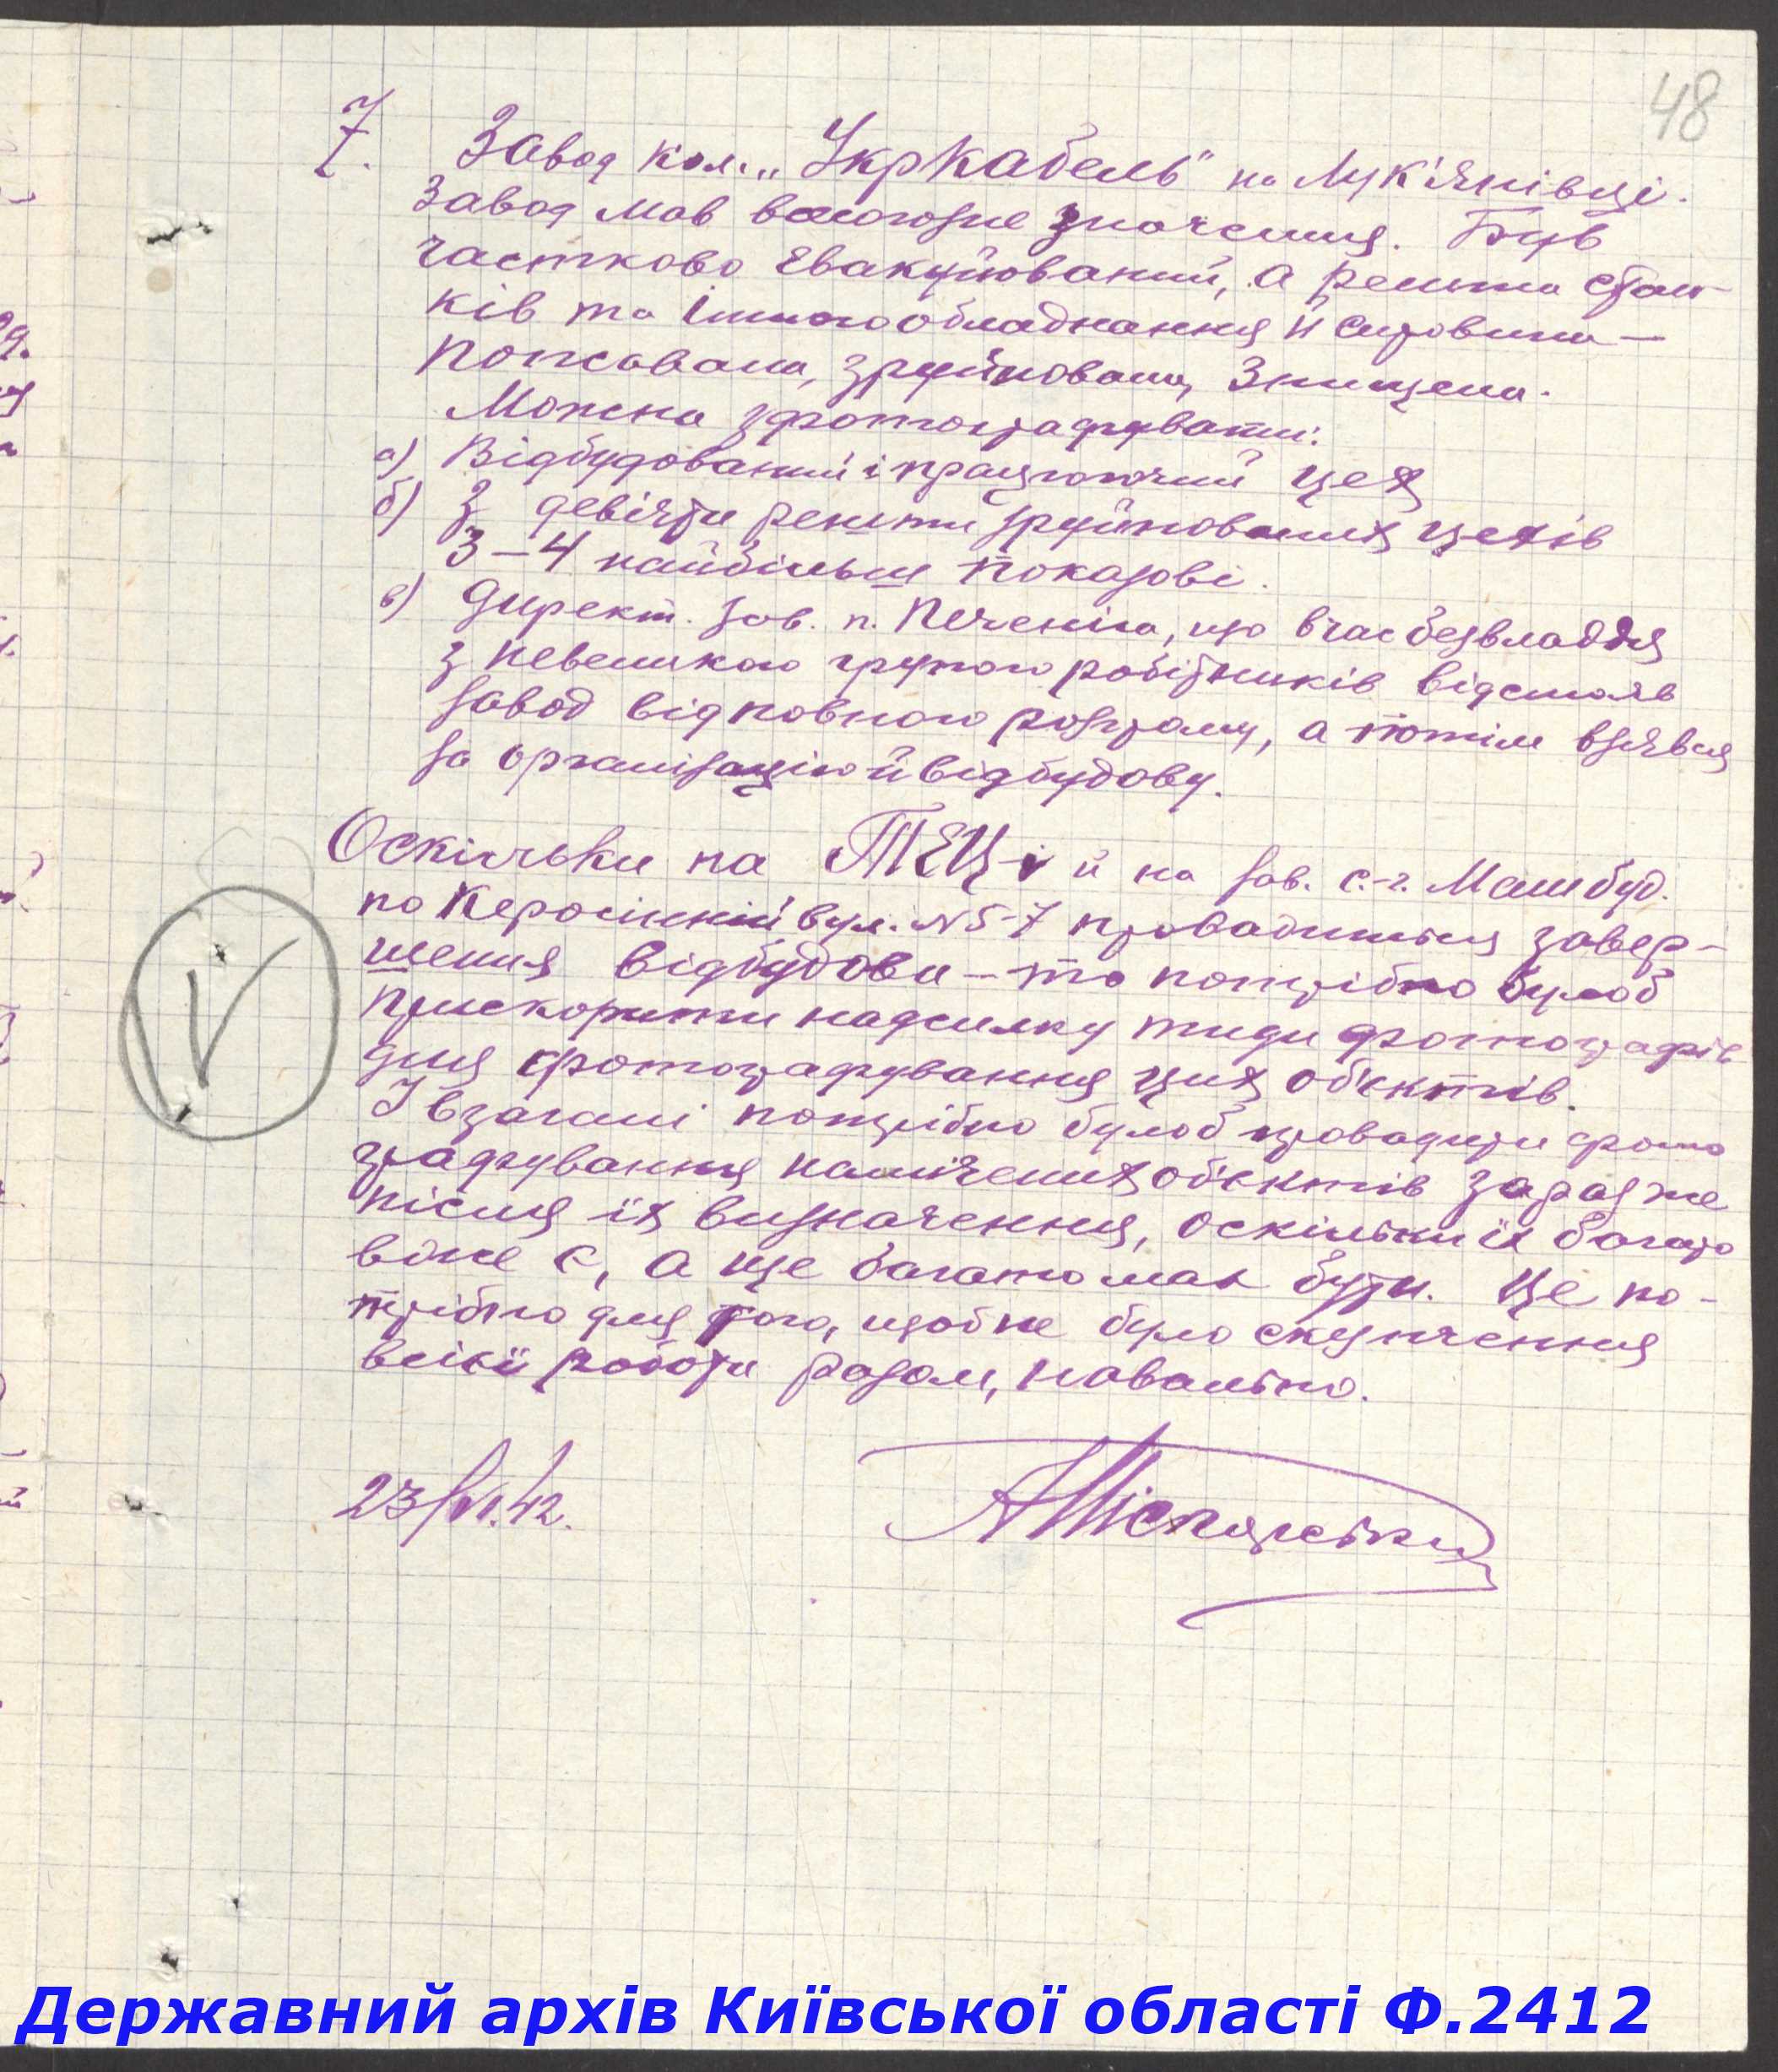 48
7. Завод кол. „Укркабель" на Лук'янівці.
Завод мав велике значення. Був
частково евакуйований, а решта стан-
ків та іншого обладнання й сировини —
попсована, зруйнована, знищена.
Можна зфотографувати:
а) Відбудований і працюючий цех
б) З девіяти решти зруйнованих цехів
3–4 найбільш показові.
в) Директ. зав. п. Печеніга, що в час безвладдя
з невеликою групою робітників відстояв
завод від повного розгрому, а потім взявся
за організацію й відбудову.
Оскільки на ТЕЦ-і й на зав. с.-г. Машбуд.
по Керосинній вул. № 5-7 провадиться завер-
шення відбудови – то потрібно булоб
прискорити надсилку туди фотографів
для фотографування цих об'єктів.
І взагалі потрібно булоб провадити фото
графування намічених об'єктів зараз же
після їх визначення, оскільки їх багато
вже є, а ще багато має бути. Це по-
трібно для того, щоб не було скупчення
всієї роботи разом, навально.
23/VI.42.
Державний архів Київської області Ф.2412